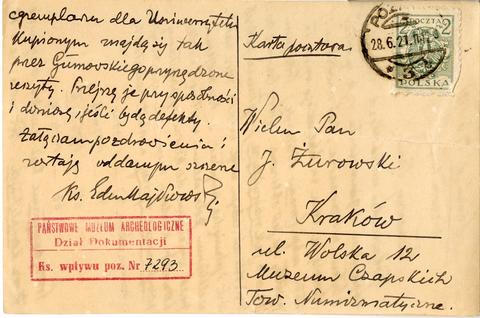 egzemplarzu dla Uniwersytetu
kupionym znajdą się tak
przez Gumowskiego przyrządzone
zeszyty. Przejrzę je przy sposobności
i doniosę, jeśli będą defekty.
Załączam pozdrowienia i
zostaję oddanym szczerze
Ks. Edm. Majkowski
PAŃSTWOWE MUZEUM ARCHEOLOGICZNE
Dział Dokumentacji
Ks. wpływu poz. Nr 7293
Karta pocztowa.
POCZTA
2 2
POLSKA
28.6.21
Wielm Pan
J. Żurowski
Kraków
ul. Wolska 12
Muzeum Czapskich
Tow. Numizmatyczne.